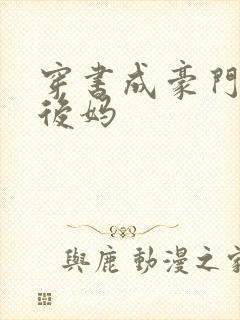 穿书成豪門
後妈
與鹿 動漫之家